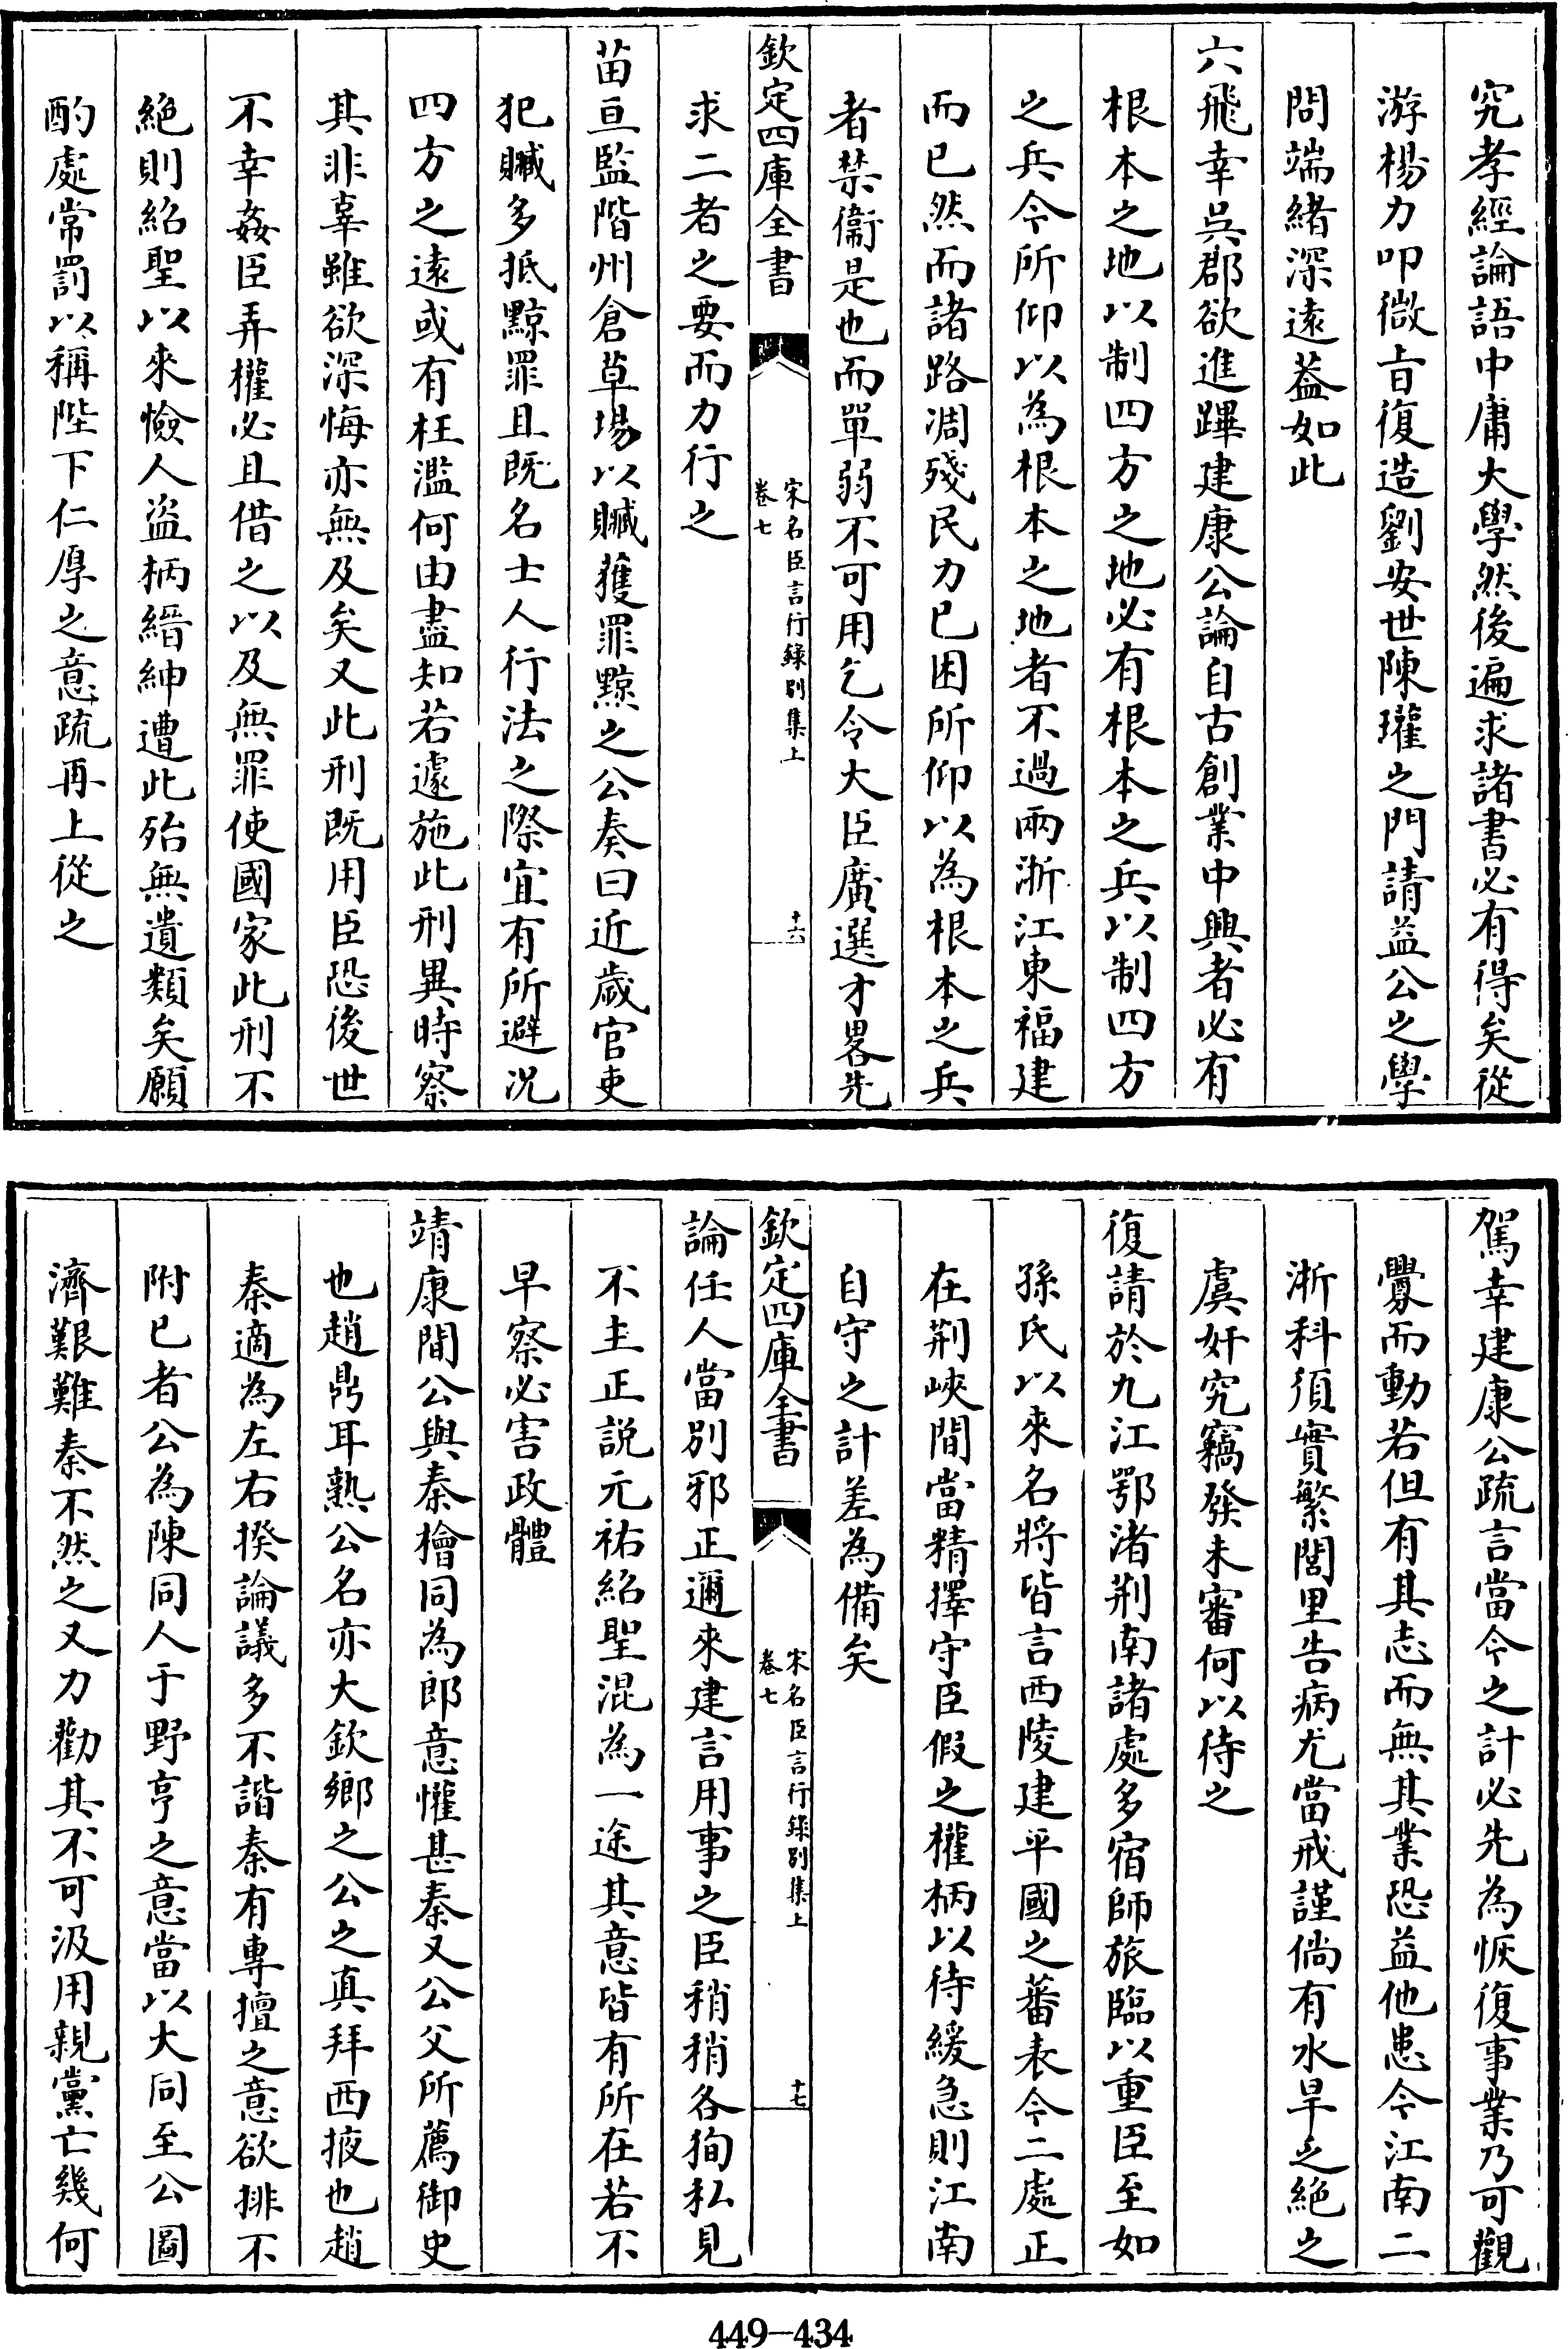 究孝經論語中庸大學然後遍求諸書必有得矣從
游楊力叩微㫖復造劉安世陳瓘之門請益公之學
問端緒深遠葢如此
六飛幸呉郡欲進蹕建康公論自古創業中興者必有
根本之地以制四方之地必有根本之兵以制四方
之兵今所仰以為根本之地者不過兩浙江東福建
而已然而諸路凋殘民力已困所仰以為根本之兵
者禁衞是也而單弱不可用乞令大臣廣選才畧先
欽定四庫全書
宋名臣言行録別集上
卷七
十六
求二者之要而力行之
苗亘監階州倉草場以贓獲罪黥之公奏曰近歲官吏
犯贓多抵黥罪且既名士人行法之際宜有所避况
四方之逺或有枉濫何由盡知若遽施此刑異時察
其非辜雖欲深悔亦無及矣又此刑既用臣恐後世
不幸姦臣弄權必且借之以及無罪使國家此刑不
絶則紹聖以來憸人盜柄縉紳遭此殆無遺類矣願
酌處常罰以稱陛下仁厚之意疏再上從之
駕幸建康公疏言當今之計必先為恢復事業乃可觀
釁而動若但有其志而無其業恐益他患今江南二
浙科須實繁閭里告病尤當戒謹倘有水旱乏絶之
虞奸宄竊發未審何以待之
復請於九江鄂渚荆南諸處多宿師旅臨以重臣至如
孫氏以來名將皆言西陵建平國之蕃表今二處正
在荆峽間當精擇守臣假之權柄以待緩急則江南
自守之計差為備矣
欽定四庫全書
宋名臣言行録別集上
卷七
十七
論任人當別邪正邇來建言用事之臣稍稍各狥私見
不主正説元祐紹聖混為一途其意皆有所在若不
早察必害政體
靖康間公與秦檜同為郎意懽甚秦又公父所薦御史
也趙鼎耳熟公名亦大欽鄉之公之真拜西掖也趙
秦適為左右揆論議多不諧秦有專擅之意欲排不
附已者公為陳同人于野亨之意當以大同至公圖
濟艱難秦不然之又力勸其不可汲用親黨亡幾何
449-434